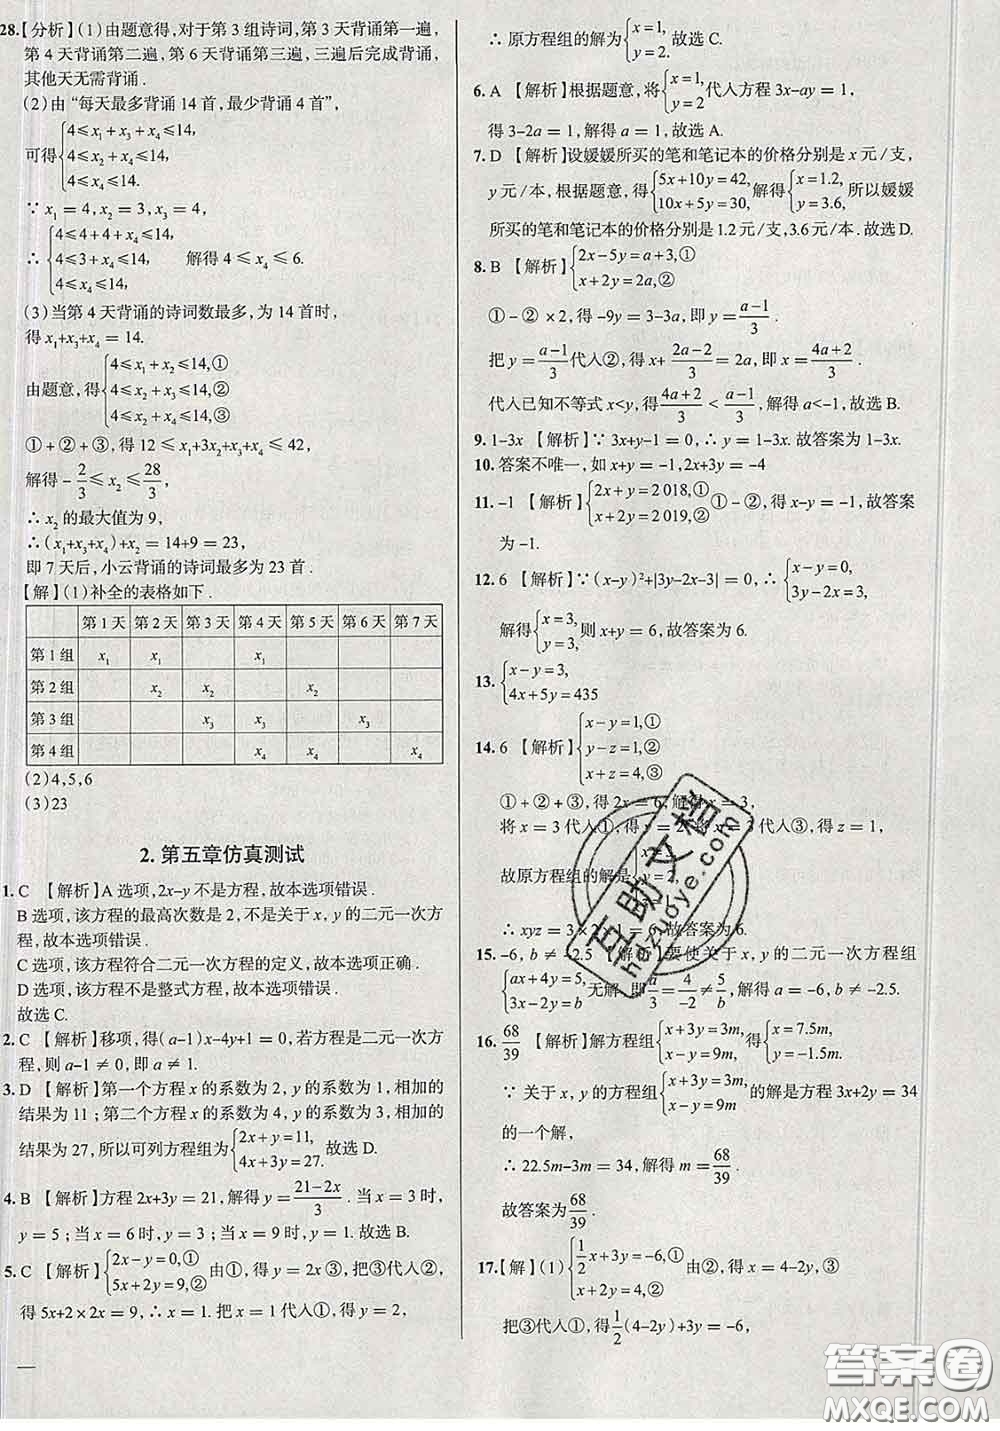 28.【分析】(1)由题意得,对于第3组诗词,第3天背诵第一遍,
第4天背诵第二遍,第6天背诵第三遍,三遍后完成背诵,
其他天无需背诵.
(2)由“每天最多背诵14首,最少背诵4首”,
可得{4≤x₁+x₃+x₄≤14, 4≤x₂+x₄≤14, 4≤x₄≤14.
∵ x₁=4,x₂=3,x₃=4,
∴ {4≤4+4+x₄≤14, 4≤3+x₄≤14, 4≤x₄≤14, 解得4≤x₄≤6.
(3)当第4天背诵的诗词数最多,为14首时,
得x₁+x₃+x₄=14.
由题意,得{4≤x₁+x₂≤14,① 4≤x₂+x₃≤14,② 4≤x₂+x₄≤14,③
①+②+③,得12≤x₁+3x₂+x₃+x₄≤42,
解得-2/3≤x₂≤28/3,
∴ x₂的最大值为9,
∴(x₁+x₃+x₄)+x₂=14+9=23,
即7天后,小云背诵的诗词最多为23首.
【解】(1)补全的表格如下.
第1天 第2天 第3天 第4天 第5天 第6天 第7天
第1组 x₁ x₁ x₁
第2组 x₂ x₂ x₂
第3组 x₃ x₃ x₃
第4组 x₄ x₄ x₄
(2)4,5,6
(3)23
2.第五章仿真测试
1.C 【解析】A选项,2x-y不是方程,故本选项错误.
B选项,该方程的最高次数是2,不是关于x,y的二元一次方
程,故本选项错误.
C选项,该方程符合二元一次方程的定义,故本选项正确.
D选项,该方程不是整式方程,故本选项错误.
故选C.
2.C 【解析】移项,得(a-1)x-4y+1=0,若方程是二元一次
方程,则a-1≠0,即a≠1.
3.D 【解析】第一个方程x的系数为2,y的系数为1,相加的
结果为11;第二个方程x的系数为4,y的系数为3,相加的
结果为27,所以可列方程组为{2x+y=11, 4x+3y=27. 故选D.
4.B 【解析】方程2x+3y=21,解得y=(21-2x)/3.当x=3时,
y=5;当x=6时,y=3;当x=9时,y=1.故选B.
5.C 【解析】{2x-y=0,① 5x+2y=9,② 由①,得y=2x③,把③代入②,
得5x+2×2x=9,∴ x=1.把x=1代入①,得y=2,
∴ 原方程组的解为{x=1, y=2. 故选C.
6.A 【解析】根据题意,将{x=1, y=2代入方程3x-ay=1,
得3-2a=1,解得a=1,故选A.
7.D 【解析】设媛媛所买的笔和笔记本的价格分别是x元/支,
y元/本,根据题意,得{5x+10y=42, 10x+5y=30, 解得{x=1.2, y=3.6, 所以媛媛
所买的笔和笔记本的价格分别是1.2元/支,3.6元/本.故选D.
8.B 【解析】{2x-5y=a+3,① x+2y=2a,②
①-②×2,得-9y=3-3a,即y=(a-1)/3.
把y=(a-1)/3代入②,得x+(2a-2)/3=2a,即x=(4a+2)/3.
代入已知不等式x<y,得(4a+2)/3<(a-1)/3,解得a<-1,故选B.
9.1-3x 【解析】∵ 3x+y-1=0,∴ y=1-3x.故答案为1-3x.
10.答案不唯一,如x+y=-1,2x+3y=-4
11.-1 【解析】{2x+y=2 018,① x+2y=2 019,② ①-②,得x-y=-1,故答案
为-1.
12.6 【解析】∵(x-y)²+|3y-2x-3|=0,∴ {x-y=0, 3y-2x=3,
解得{x=3, y=3, 则x+y=6,故答案为6.
13.{x-y=3, 4x+5y=435
14.6 【解析】{x-y=1,① y-z=1,② x+z=4,③
①+②+③,得2x=6,解得x=3,
将x=3代入①,得y=2,将x=3代入③,得z=1,
故原方程组的解是 y=2,
∴ xyz=3×2×1=6.故答案为6.
15.-6,b≠-2.5 【解析】要使关于x,y的二元一次方程组
{ax+4y=5, 3x-2y=b 无解,即a/3=4/-2≠5/b,解得a=-6,b≠-2.5.
16.68/39 【解析】解方程组{x+3y=3m, x-y=9m, 得{x=7.5m, y=-1.5m.
∵ 关于x,y的方程组{x+3y=3m, x-y=9m 的解是方程3x+2y=34
的一个解,
∴ 22.5m-3m=34,解得m=68/39.
故答案为68/39.
17.【解】(1){1/2x+3y=-6,① x+2y=4,② 由②,得x=4-2y,③
把③代入①,得1/2(4-2y)+3y=-6,
互助文档
hdzuoye.com
答案圈
MXQE.COM